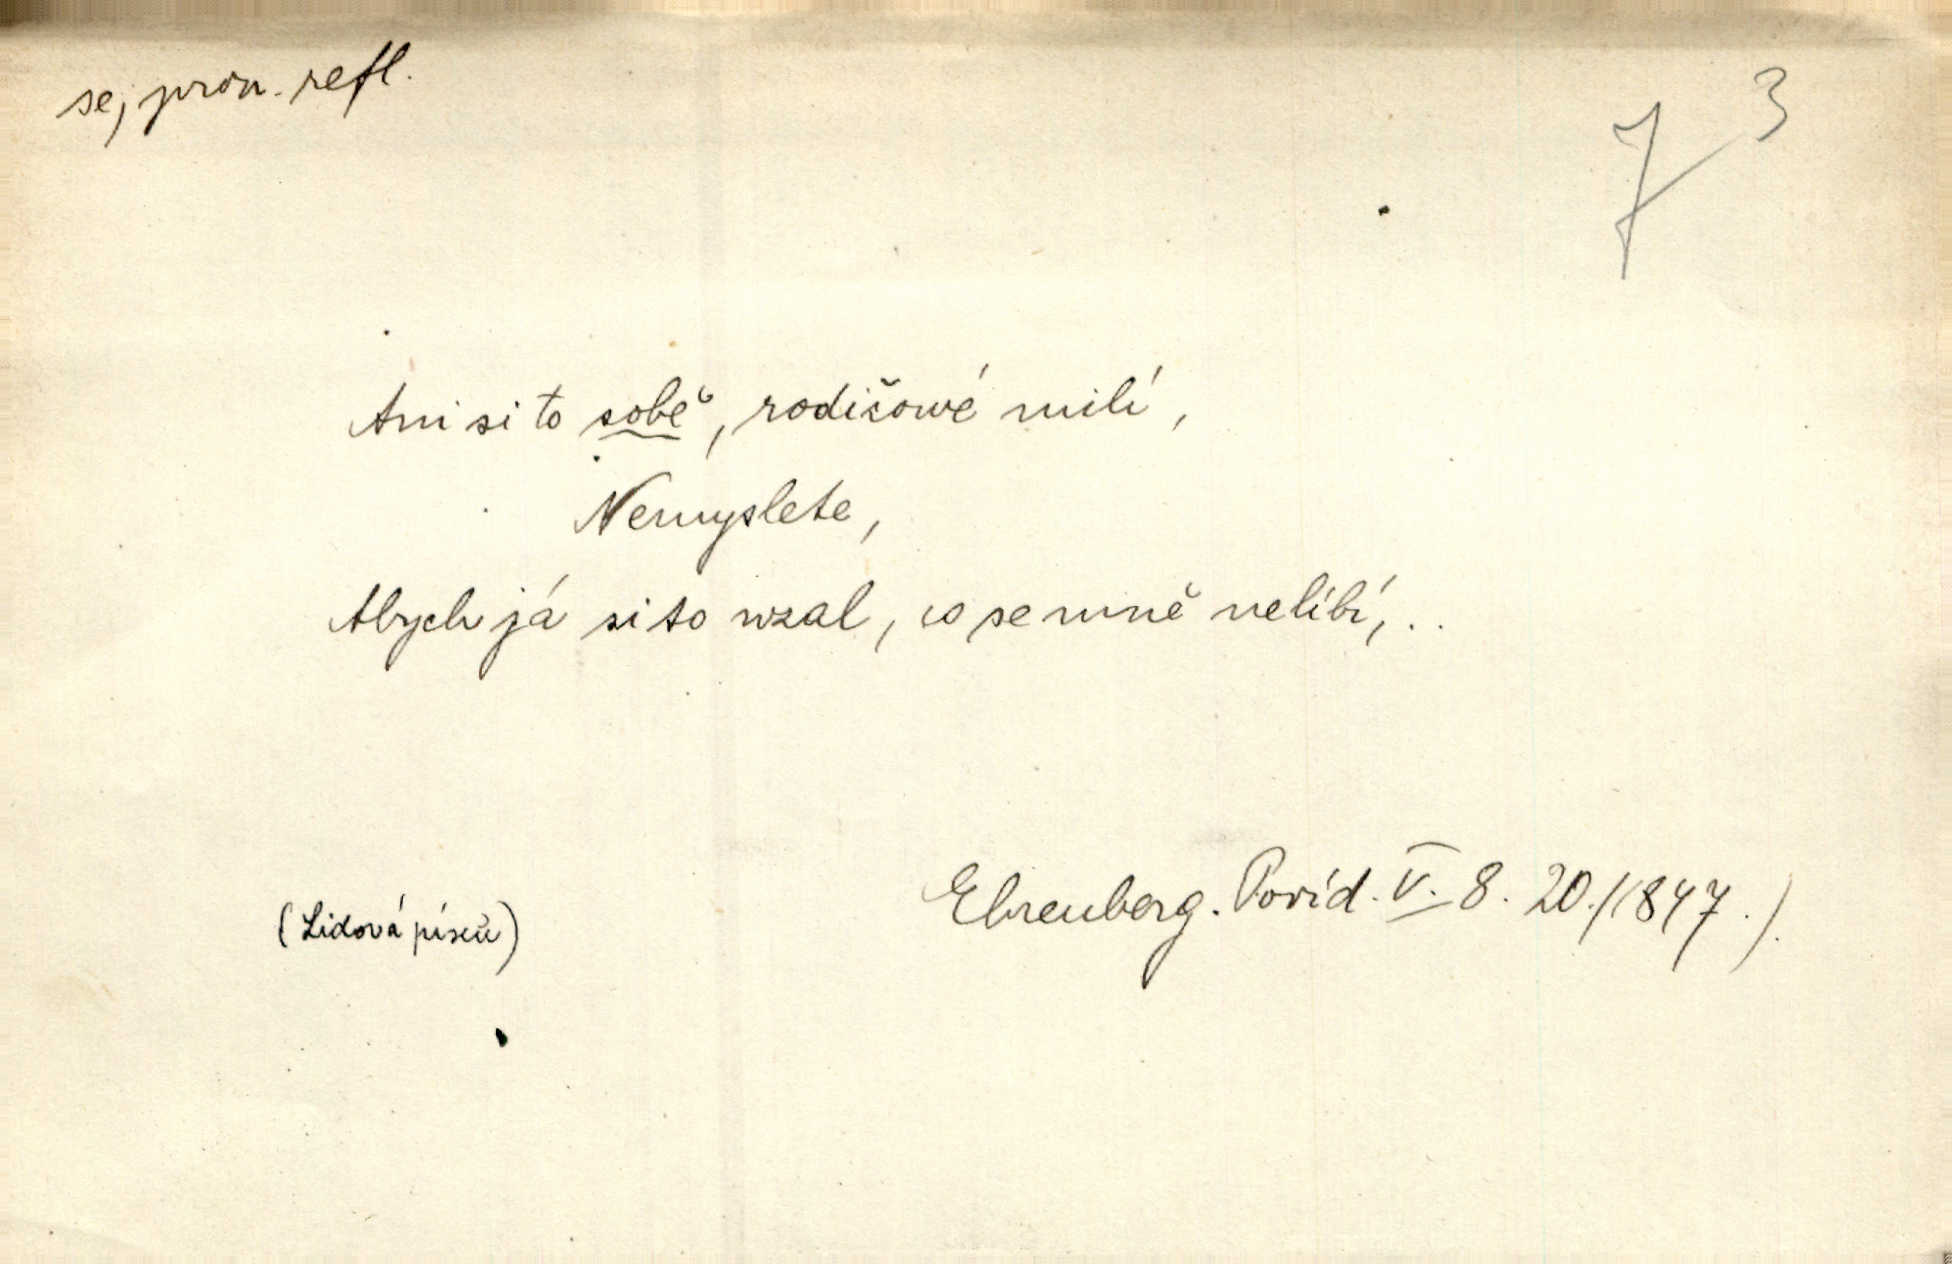 se, pron. refl.
7 3
Ani si to sobě, rodičowé milí,
Nemyslete,
Abych já si to wzal, co se mně nelíbí, ..
(Lidová píseň)
Ehrenberg. Povíd. V. 8. 20. (1847.).